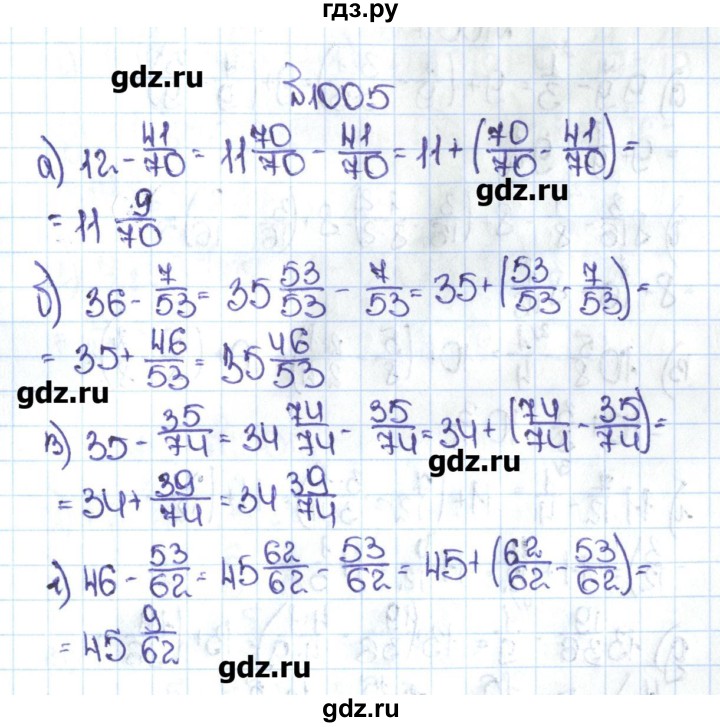 гдз.ру
gdz.ru
№1005
а) 12 - 41/70 = 11 70/70 - 41/70 = 11 + (70/70 - 41/70) =
gdz.ru
= 11 9/70
б) 36 - 7/53 = 35 53/53 - 7/53 = 35 + (53/53 - 7/53) =
= 35 + 46/53 = 35 46/53
gdz.ru
в) 35 - 35/74 = 34 74/74 - 35/74 = 34 + (74/74 - 35/74) =
gdz.ru
= 34 + 39/74 = 34 39/74
г) 46 - 53/62 = 45 62/62 - 53/62 = 45 + (62/62 - 53/62) =
= 45 9/62
gdz.ru
gdz.ru